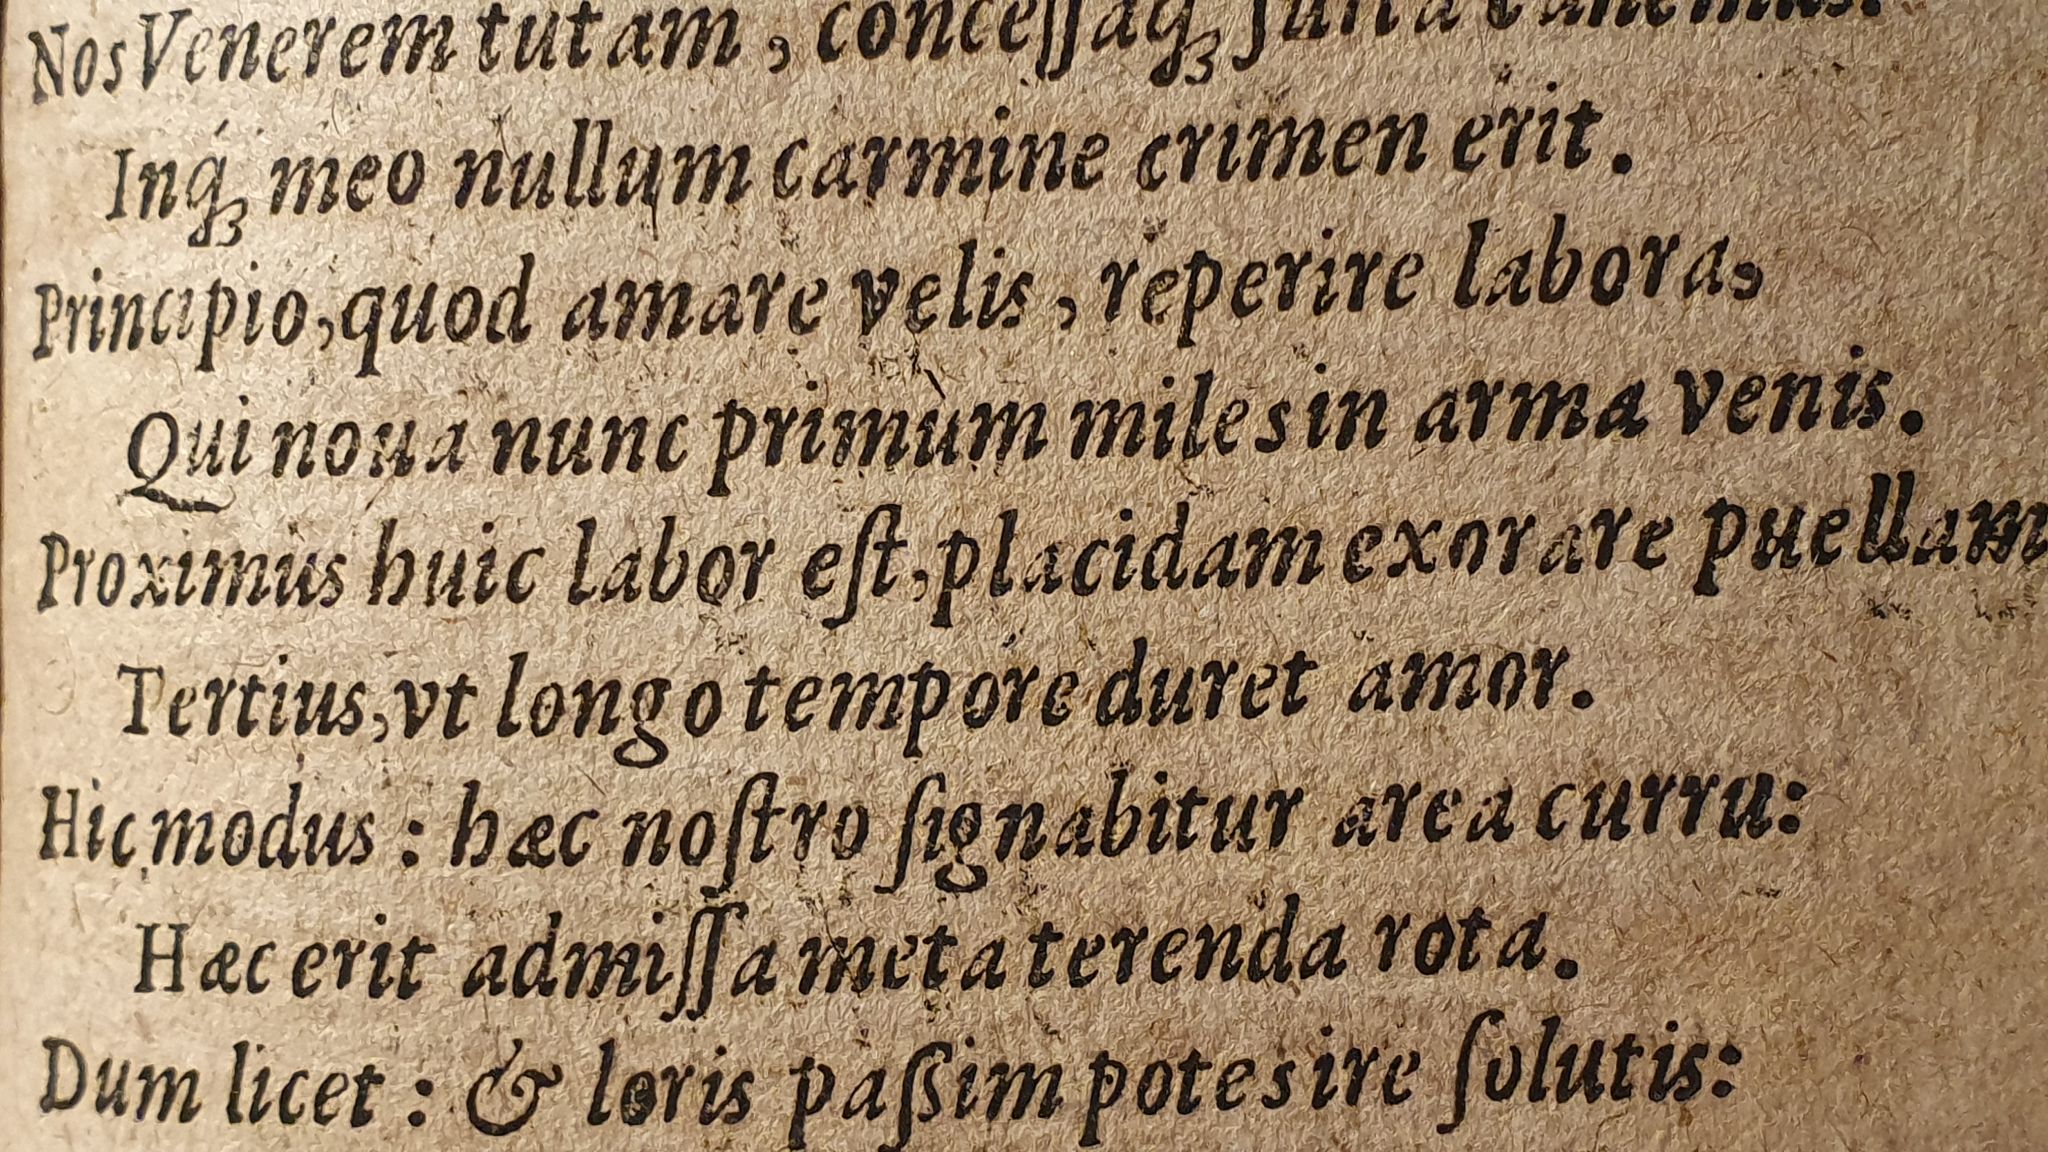 Nos Venerem tutam, conceſſaq́ꝫ furta canemus:
Inq́ꝫ meo nullum carmine crimen erit.
Principio, quod amare velis, reperire labora,
Qui noua nunc primùm miles in arma venis.
Proximus huic labor eſt, placidam exorare puellam
Tertius, vt longo tempore duret amor.
Hic modus: hæc noſtro ſignabitur area curru:
Hæc erit admiſſa meta terenda rota.
Dum licet: & loris paßim potes ire ſolutis: